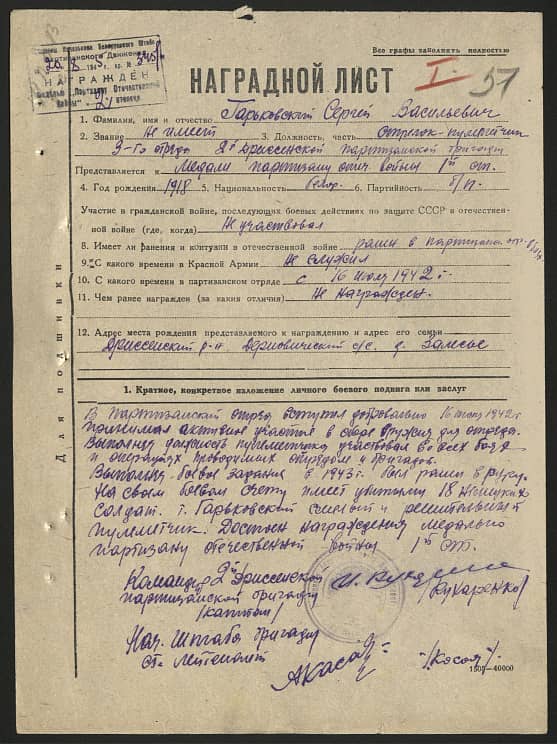 Все графы заполнить полностью
НАГРАЖДЕН
НАГРАДНОЙ ЛИСТ
I-
51
1. Фамилия, имя и отчество Гарьковский Сергей Васильевич
2. Звание Не имеет 3. Должность, часть Стрелок-пулеметчик
3-го отряда 2й Дриссенской партизанской бригады
Представляется к Медали партизану отеч. войны 1й ст.
4. Год рождения 1918 5. Национальность белор. 6. Партийность б/п.
Участие в гражданской войне, последующих боевых действиях по защите СССР и отечествен-
ной войне (где, когда) Не участвовал
8. Имеет ли ранения и контузии в отечественной войне ранен в партизанс.
9. С какого времени в Красной Армии Не служил
10. С какого времени в партизанском отряде с 16 июля 1942 г.
11. Чем ранее награжден (за какия отличия) Не награжден.
12. Адрес места рождения представляемого к награждению и адрес его семьи
Дриссенский р-н Дерновический с/с. д. Залесье
Для подшивки
1. Краткое, конкретное изложение личного боевого подвига или заслуг
В партизанский отряд вступил добровольно 16 июля 1942г
принимал активное участие в сборе оружия для отряда.
Выполняя должность пулеметчика участвовал во всех боях
и операциях проводимых отрядом и бригадой.
Выполняя боевое задание в 1943г. был ранен в руку.
На своем боевом счету имеет убитыми 18 немецких
солдат. т. Гарьковский смелый и решительный
пулеметчик. Достоен награждения медалью
партизану отечественной войны 1й ст.
Командир 2й Дриссенской
партизанской бригады
/капитан/
/Кухаренко/
Нач. Штаба бригады
ст. лейтенант
АКосой
/Косой/
1505-40000